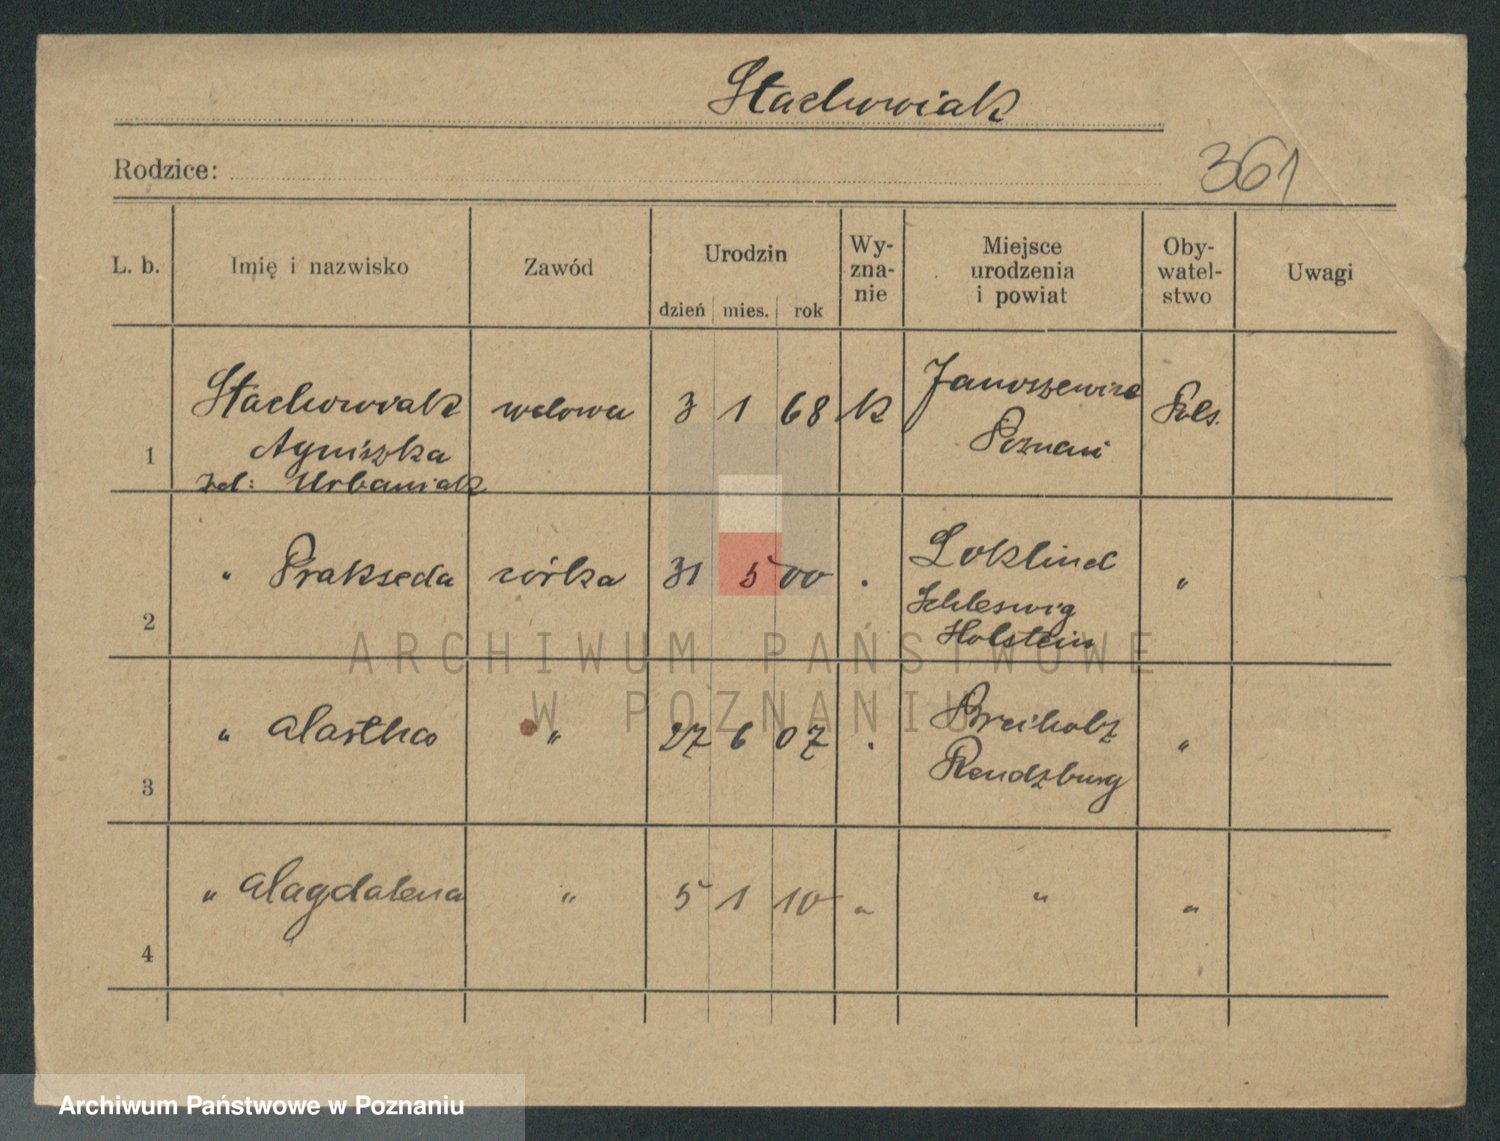 Stachowiak
Rodzice:
361
L. b. Imię i nazwisko Zawód Urodzin dzień mies. rok Wy-zna-nie Miejsce urodzenia i powiat Oby-watel-stwo Uwagi
1 Stachowiak wdowa 3 1 68 K
Agniszka Poznań
Urbaniak
2 " Prakseda córka 31 5 00 . Loklind "
Schleswig
Holstein
3 " Martha " 27 6 07 . Breiholz "
Rendzburg
4 " Magdalena " 5 1 10 " " "
ARCHIWUM PAŃSTWOWE
W POZNANIU
Archiwum Państwowe w Poznaniu